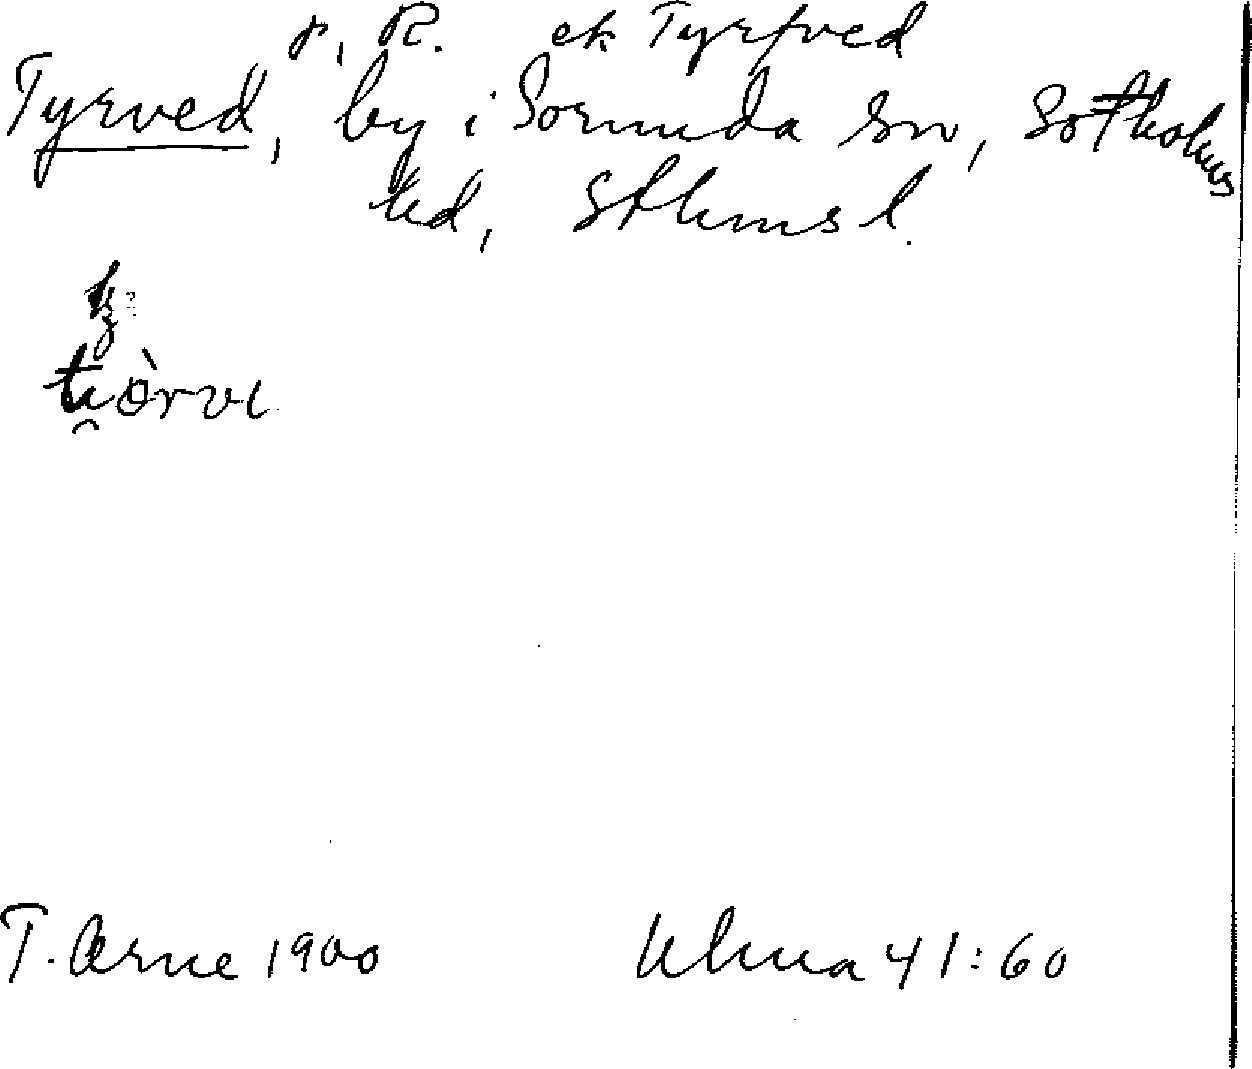 r, R. ek Tyrfved
Tyrved, by i Sorunda sn, Sotholms
hd, Sthms l.
tiòrvi
T. Arne 1900 Uluua 41:60